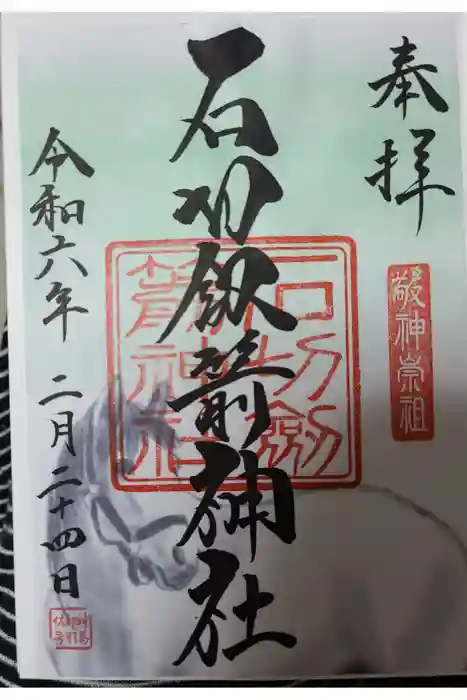 奉拝
敬神崇祖
石切劔箭神社
石切劔
箭神社
令和六年 二月二十四日